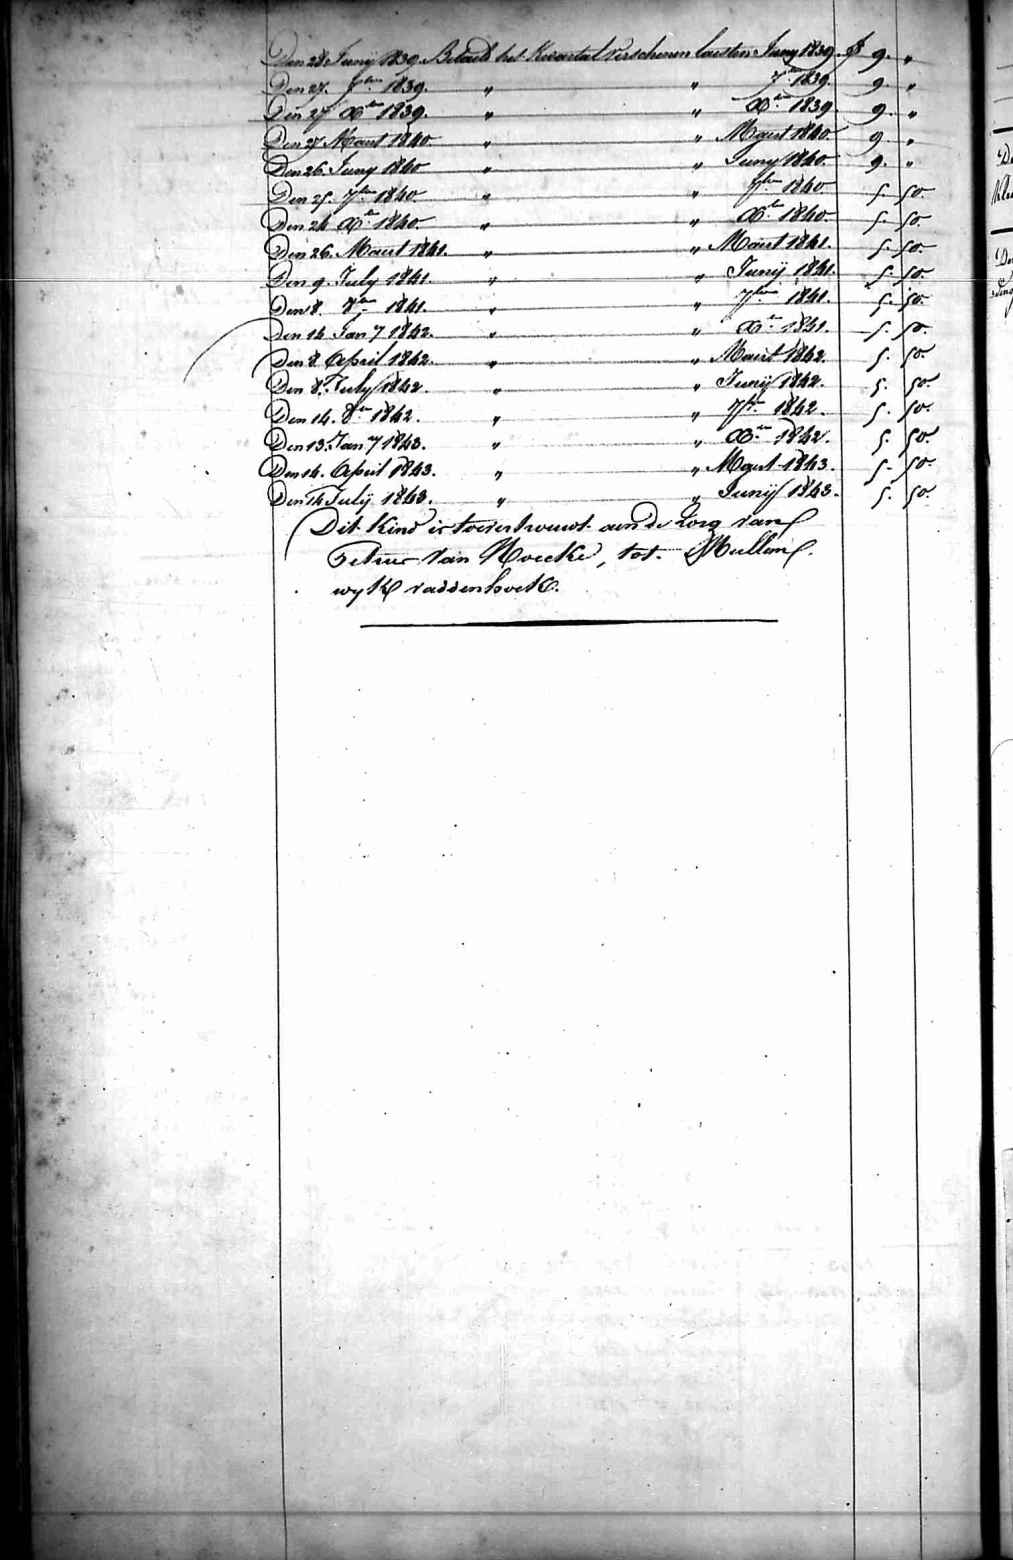 Den 28 Junij 1839. Betaald het Kwartal verschenen laesten Juny 1839. f 9. "
Den 27. 7ber 1839. " " 7ber 1839. 9. "
Den 27 Xber 1839. " " Xber 1839. 9. "
Den 27 Maart 1840. " " Maart 1840. 9 "
Den 26 Juny 1840 " " Juny 1840. 9. "
Den 25. 7ber 1840. " " 7ber 1840 5. 50.
Den 24 Xber 1840. " " Xber 1840. 5. 50.
Den 26. Maart 1841. " " Maart 1841. 5. 50.
Den 9. July 1841. " " Junij 1841. 5. 50.
Den 8. 8ber 1841. " " 7ber 1841. 5. 50.
Den 14 Jany 1842. " " Xber 1841. 5. 50.
Den 8 April 1842. " " Maart 1842. 5. 50.
Den 8. July 1842. " " Junij 1842. 5. 50.
Den 14. 8ber 1842. " " 7ber 1842. 5. 50.
Den 13. Jany 1843. " " Xber 1842. 5. 50.
Den 14. April 1843. " " Maart 1843. 5. 50.
Den 14 July 1843. " " Junij 1843. 5. 50.
Dit Kind is toevertrouwt aen de Zorg van
Petrus Van Hoecke, tot Mullem
wyk vaddenhoek.